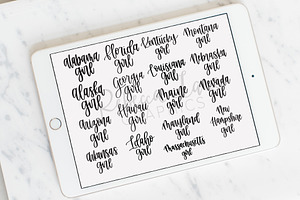 alabama
girl
florida
girl
kentucky
girl
montana
girl
alaska
girl
georgia
girl
louisiana
girl
nebraska
girl
arizona
girl
hawaii
girl
maine
girl
nevada
girl
arkansas
girl
idaho
girl
maryland
girl
massachusetts
girl
new
hampshire
girl
GRAPHICS